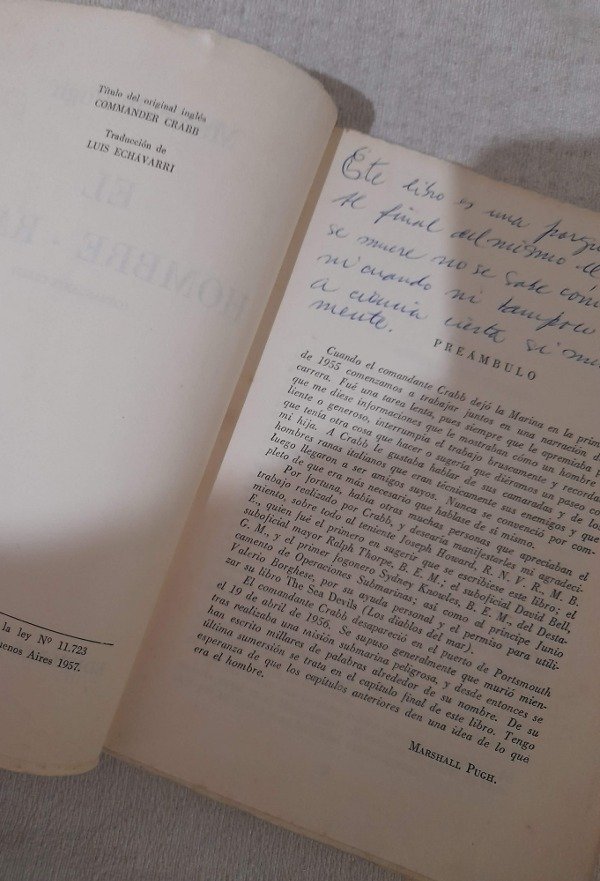 Título del original inglés
COMMANDER CRABB
Traducción de
LUIS ECHÁVARRI
EL
HOMBRE
la ley Nº 11.723
uenos Aires 1957.
Este libro es una
Al final del mismo el
se muere no se sabe
ni cuando ni tampoco
a ciencia cierta si
mente.
PREÁMBULO
Cuando el comandante Crabb dejó la Marina en la prim
de 1955 comenzamos a trabajar juntos en una narración d
carrera. Fué una tarea lenta, pues siempre que le apremiaba p
que me diese informaciones que le mostraban cómo un hombre
liente o generoso, interrumpía el trabajo bruscamente y recorda
que tenía otra cosa que hacer o sugería que diéramos un paseo co
mi hija. A Crabb le gustaba hablar de sus camaradas y de los
hombres ranas italianos que eran técnicamente sus enemigos y que
luego llegaron a ser amigos suyos. Nunca se convenció por com-
pleto de que era más necesario que hablase de sí mismo.
Por fortuna, había otras muchas personas que apreciaban el
trabajo realizado por Crabb, y desearía manifestarles mi agradeci-
miento, sobre todo al teniente Joseph Howard, R. N. V. R., M. B.
E., quien fué el primero en sugerir que se escribiese este libro; el
suboficial mayor Ralph Thorpe, B. E. M.; el suboficial David Bell,
G. M., y el primer fogonero Sydney Knowles, B. E. M., del Desta-
camento de Operaciones Submarinas; así como al príncipe Junio
Valerio Borghese, por su ayuda personal y el permiso para utili-
zar su libro The Sea Devils (Los diablos del mar).
El comandante Crabb desapareció en el puerto de Portsmouth
el 19 de abril de 1956. Se supuso generalmente que murió mien-
tras realizaba una misión submarina peligrosa, y desde entonces se
han escrito millares de palabras alrededor de su nombre. De su
última sumersión se trata en el capítulo final de este libro. Tengo
esperanza de que los capítulos anteriores den una idea de lo que
era el hombre.
MARSHALL PUGH.